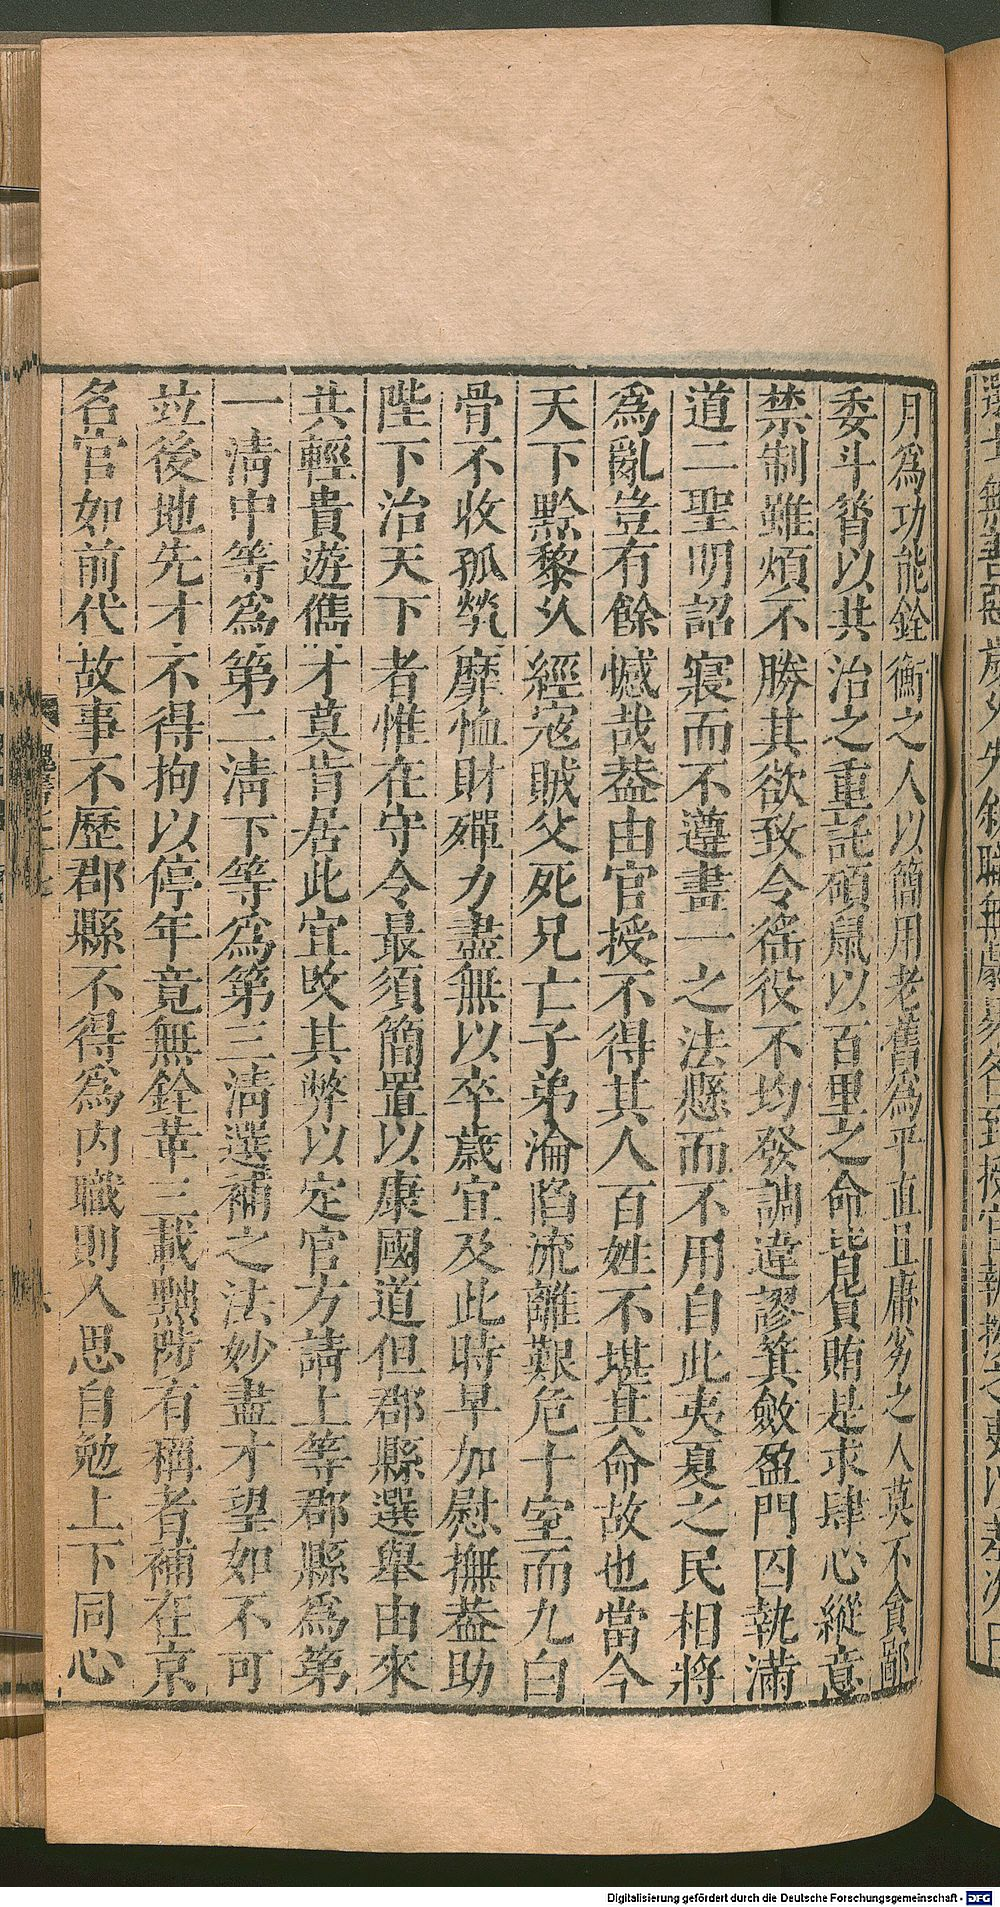 月爲功能銓衡之人以簡用老舊爲平直且庸劣之人莫不貪鄙
委斗筲以共治之重託碩鼠以百里之命皆貨賄是求肆心縱意
禁制雖煩不勝其欲致令徭役不均發調違謬箕斂盈門囚執滿
道二聖明詔寢而不遵畫一之法懸而不用自此夷夏之民相將
爲亂豈有餘憾哉葢由官授不得其人百姓不堪其命故也當今
天下黔黎乆經寇賊父死兄亡子弟淪陷流離艱危十室而九白
骨不收孤煢靡恤財殫力盡無以卒歲宜及此時早加慰撫葢助
陛下治天下者惟在守令最須簡置以康國道但郡縣選舉由來
共輕貴遊儁才莫肯居此宜改其弊以定官方請上等郡縣爲第
一清中等爲第二清下等爲第三清選補之法妙盡才望如不可
竝後地先才不得拘以停年竟無銓革三載黜陟有稱者補在京
名官如前代故事不歷郡縣不得爲內職則人思自勉上下同心
Digitalisierung gefördert durch die Deutsche Forschungsgemeinschaft - DFG